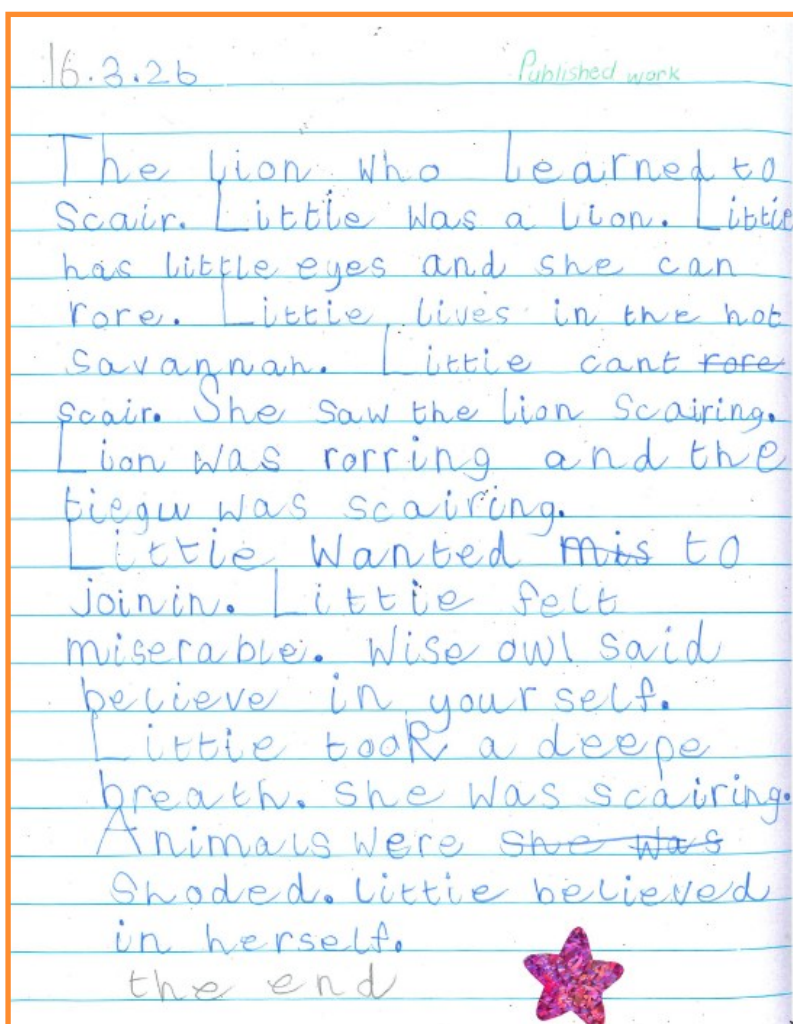 16.3.26 Published work
The Lion who Learned to
Scair. Little was a Lion. Little
has little eyes and she can
rore. Little lives in the hot
Savannah. Little cant rore
scair. She saw the lion scairing.
Lion was rorring and the
tiegu was scairing.
Little wanted mis to
joinin. Little felt
miserable. Wise owl said
believe in your self.
Little took a deepe
breath. She was scairing.
Animals were she was
Shoded. Little believed
in herself.
the end